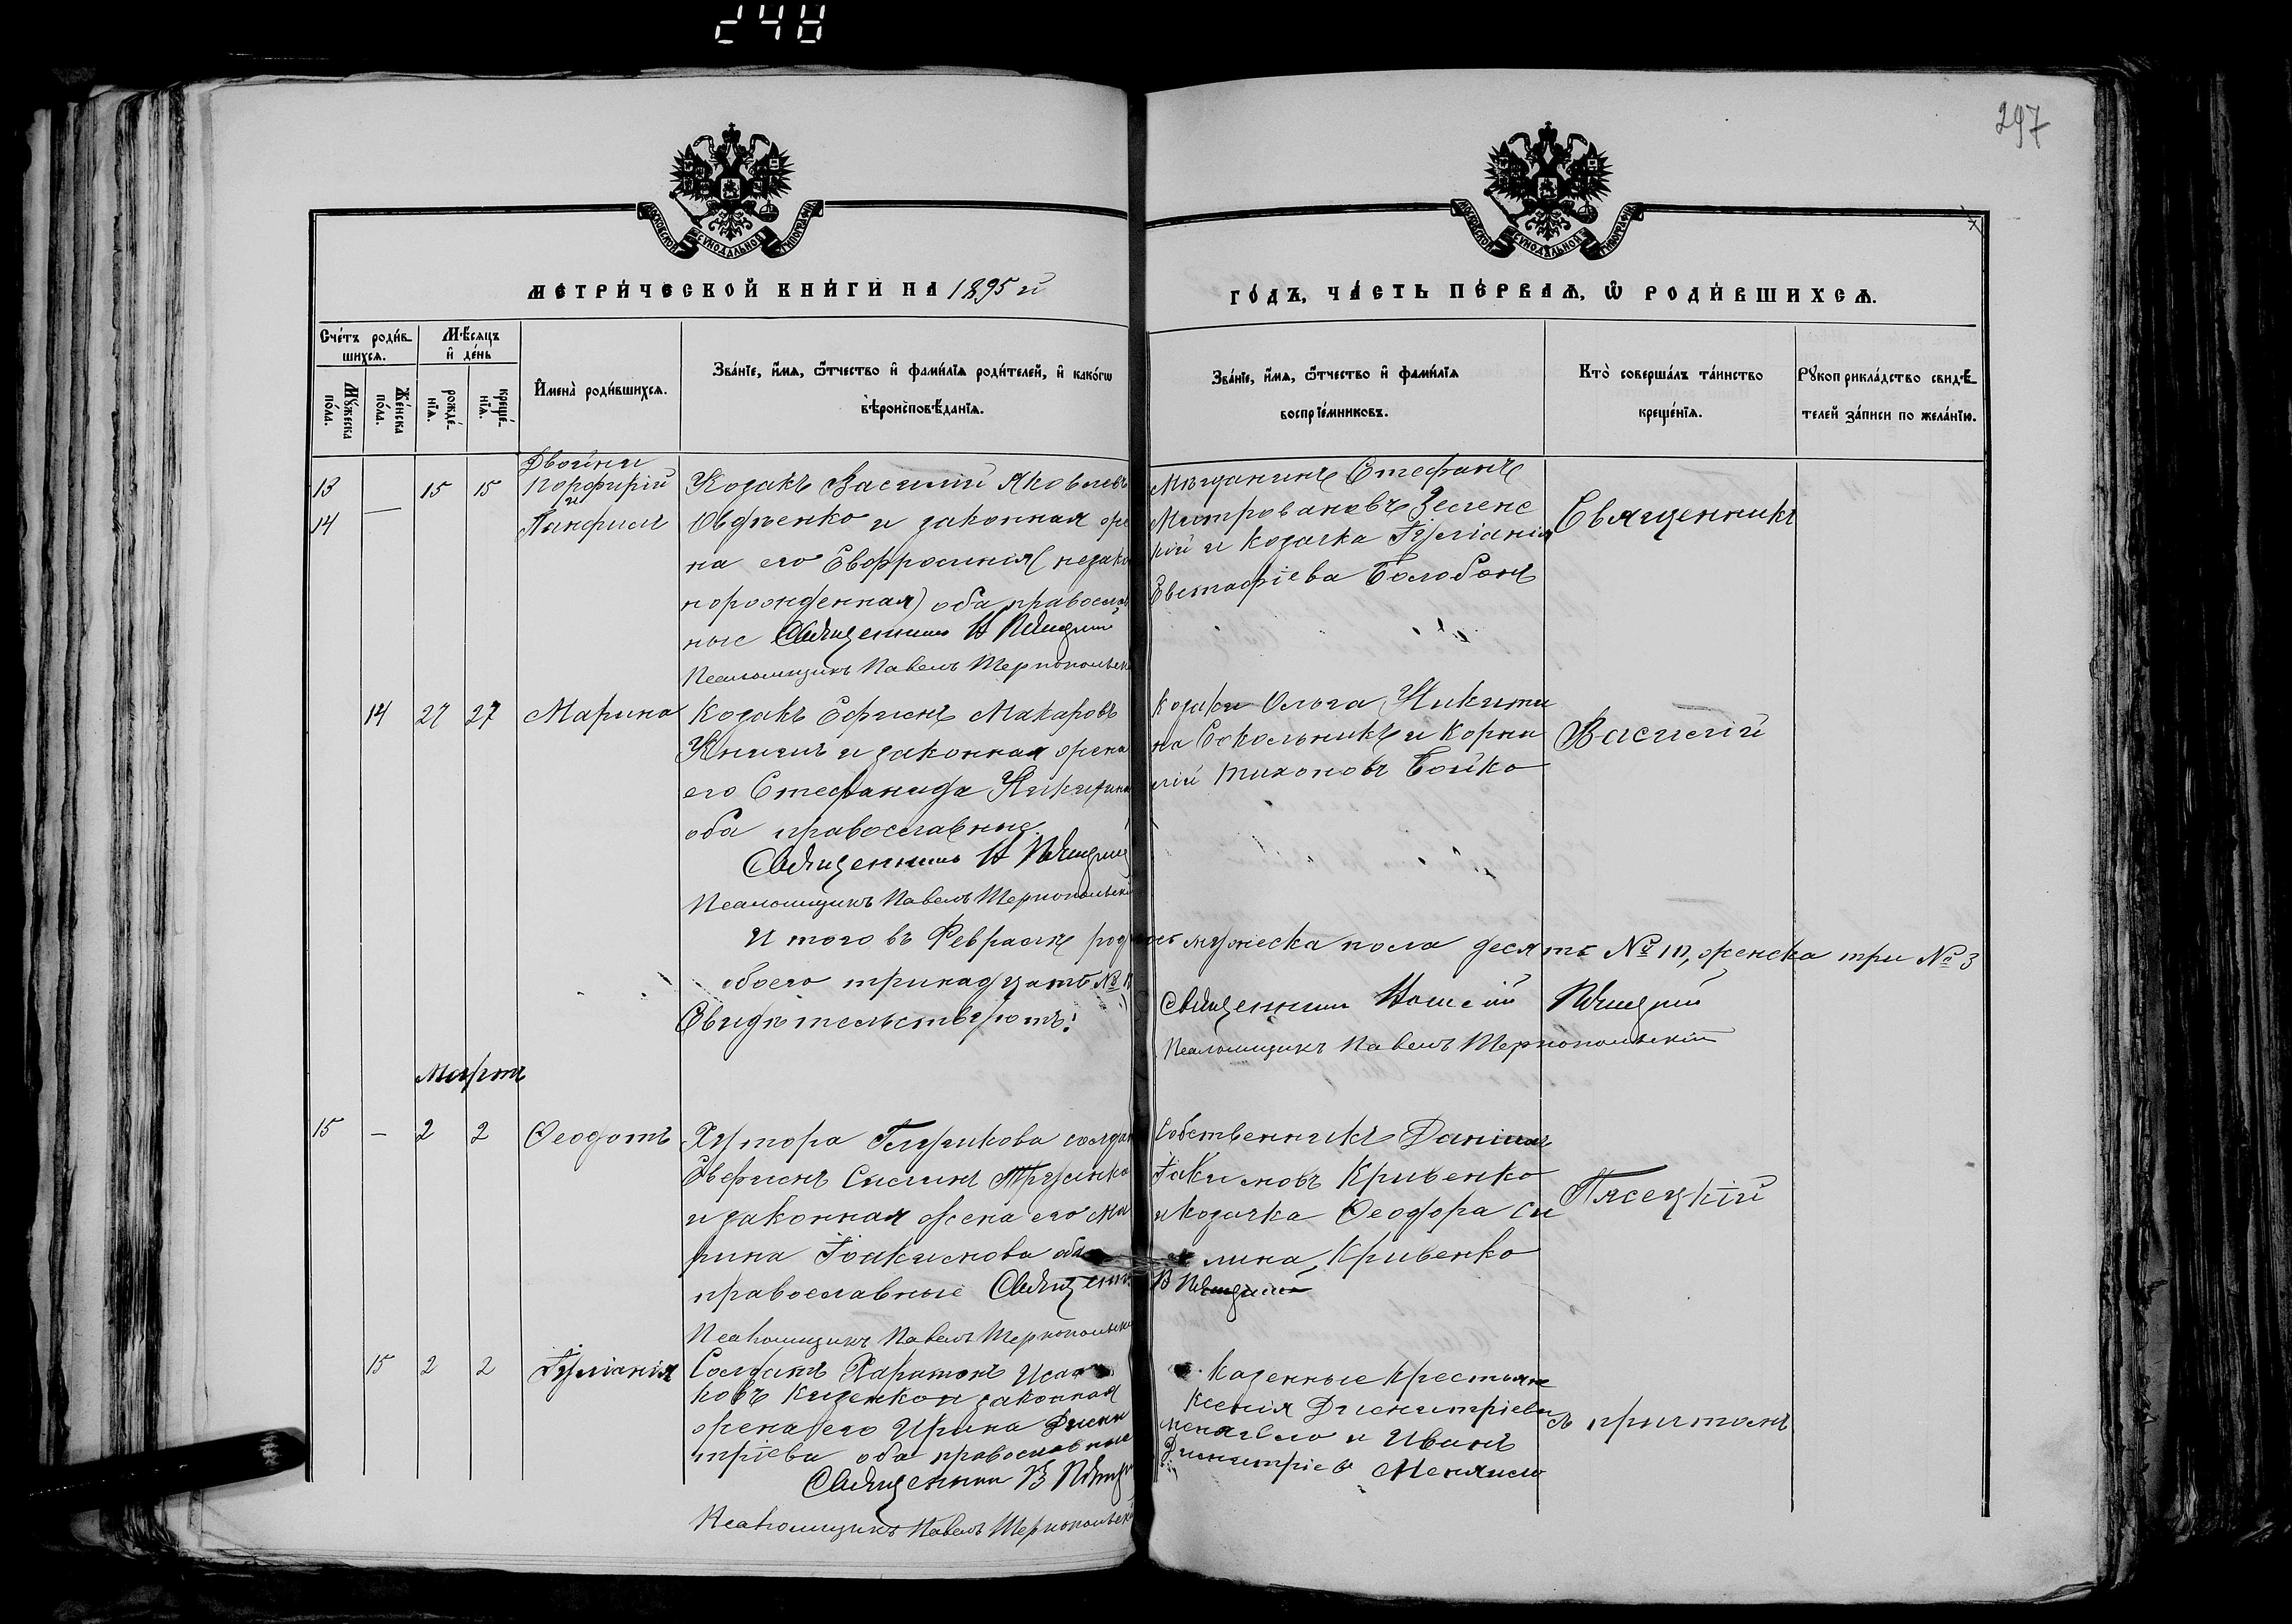 248
297
МОСКОВСКОЙ СѴНОДАЛЬНОЙ ТИПОГРАФІИ
МОСКОВСКОЙ СѴНОДАЛЬНОЙ ТИПОГРАФІИ
МЕТРИ́ЧЕСКОЙ КНИ́ГИ НА 1895 й
ГО́ДЪ, ЧА́СТЬ ПЕ́РВАѦ, Ѡ҆ РОДИ́ВШИХСѦ.
Сче́тъ роди́в-
шихсѧ.
Мѣ́сѧцъ
и҆ де́нь
Мꙋ́жеска
по́ла.
Же́нска
по́ла.
рожде́-
нїѧ.
креще́-
нїѧ.
И҆мена̀ роди́вшихсѧ.
Зва́нїе, и҆́мѧ, ѻ҆́тчество и҆ фами́лїѧ роди́телей, и҆ како́гѡ
вѣроисповѣ́данїѧ.
Зва́нїе, и҆́мѧ, ѻ҆́тчество и҆ фами́лїѧ
воспрїе́мниковъ.
Кто̀ соверша́лъ та́инство
креще́нїѧ.
Рꙋкоприкла́дство свидѣ́-
телей за́писи по жела́нїю.
Двойни
13 15 15 Порфирій
и
14 — Памфилъ
Козакъ Василій Яковлевъ
Овдѣенко и законная же
на его Евфросинія (незако
норожденная) оба православ
ные Священникъ
Псаломщикъ Павелъ Тернопольскій
Мѣщанинъ Стефанъ
Митрофановъ Зелене
кій и козачка Іуліанія
Евстафіева Болобонъ
Священникъ
14 27 27 Марина
Козакъ Ефимъ Макаровъ
и законная жена
его Стефанида Никитина
оба православные.
Священникъ
Псаломщикъ Павелъ Тернопольскій
Козаки Ольга Никити
на Сокольникъ и Корни
лій Тихоновъ Бойко
Василій
Итого въ Февралѣ родилось мужеска пола десять № 10, женска три № 3
обоего тринадцать №
Свидѣтельствуютъ:
Священникъ
Псаломщикъ Павелъ Тернопольскій
Мартъ
15 — 2 2 Ѳеодотъ
Хутора солдатъ
и законная жена его Ма
рина Іоакимова оба
православные Священникъ
Псаломщикъ Павелъ Тернопольскій
Собственникъ Даніилъ
Іакимовъ Кривенко
и козачка Ѳеодора Си
лина Кривенко
Пясецкій
15 2 2 Іуліанія
Солдатъ Харитонъ Исаа
ковъ и законная
жена его Ирина Дими
тріева оба православные
Священникъ
Псаломщикъ Павелъ Тернопольскій
Казенные крестьяне
Ксенія Димитріева
и Иванъ
Димитріевъ
съ причтомъ